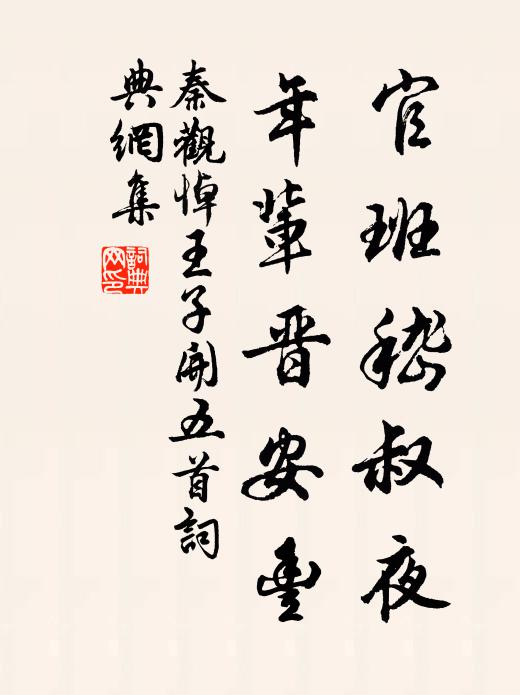 官班嵇叔夜
年輩晋安豐
秦觀悼王子開五首詞
典網集
詞典
网印